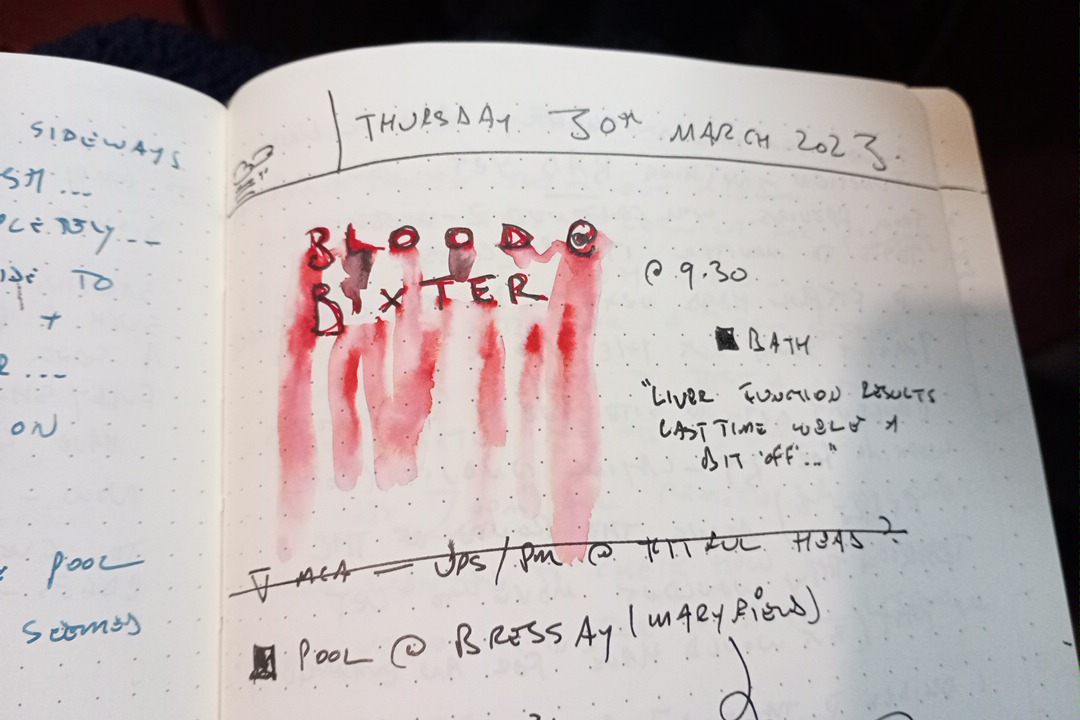 SIDEWAYS
TO
+
ON
POOL
SEEMED
THURSDAY 30TH MARCH 2023.
BLOOD @
BIXTER
@ 9.30
BATH
"LIVER FUNCTION RESULTS
LAST TIME WERE A
BIT 'OFF'..."
@ HEAD?
POOL @ BRESSAY (MARYFIELD)